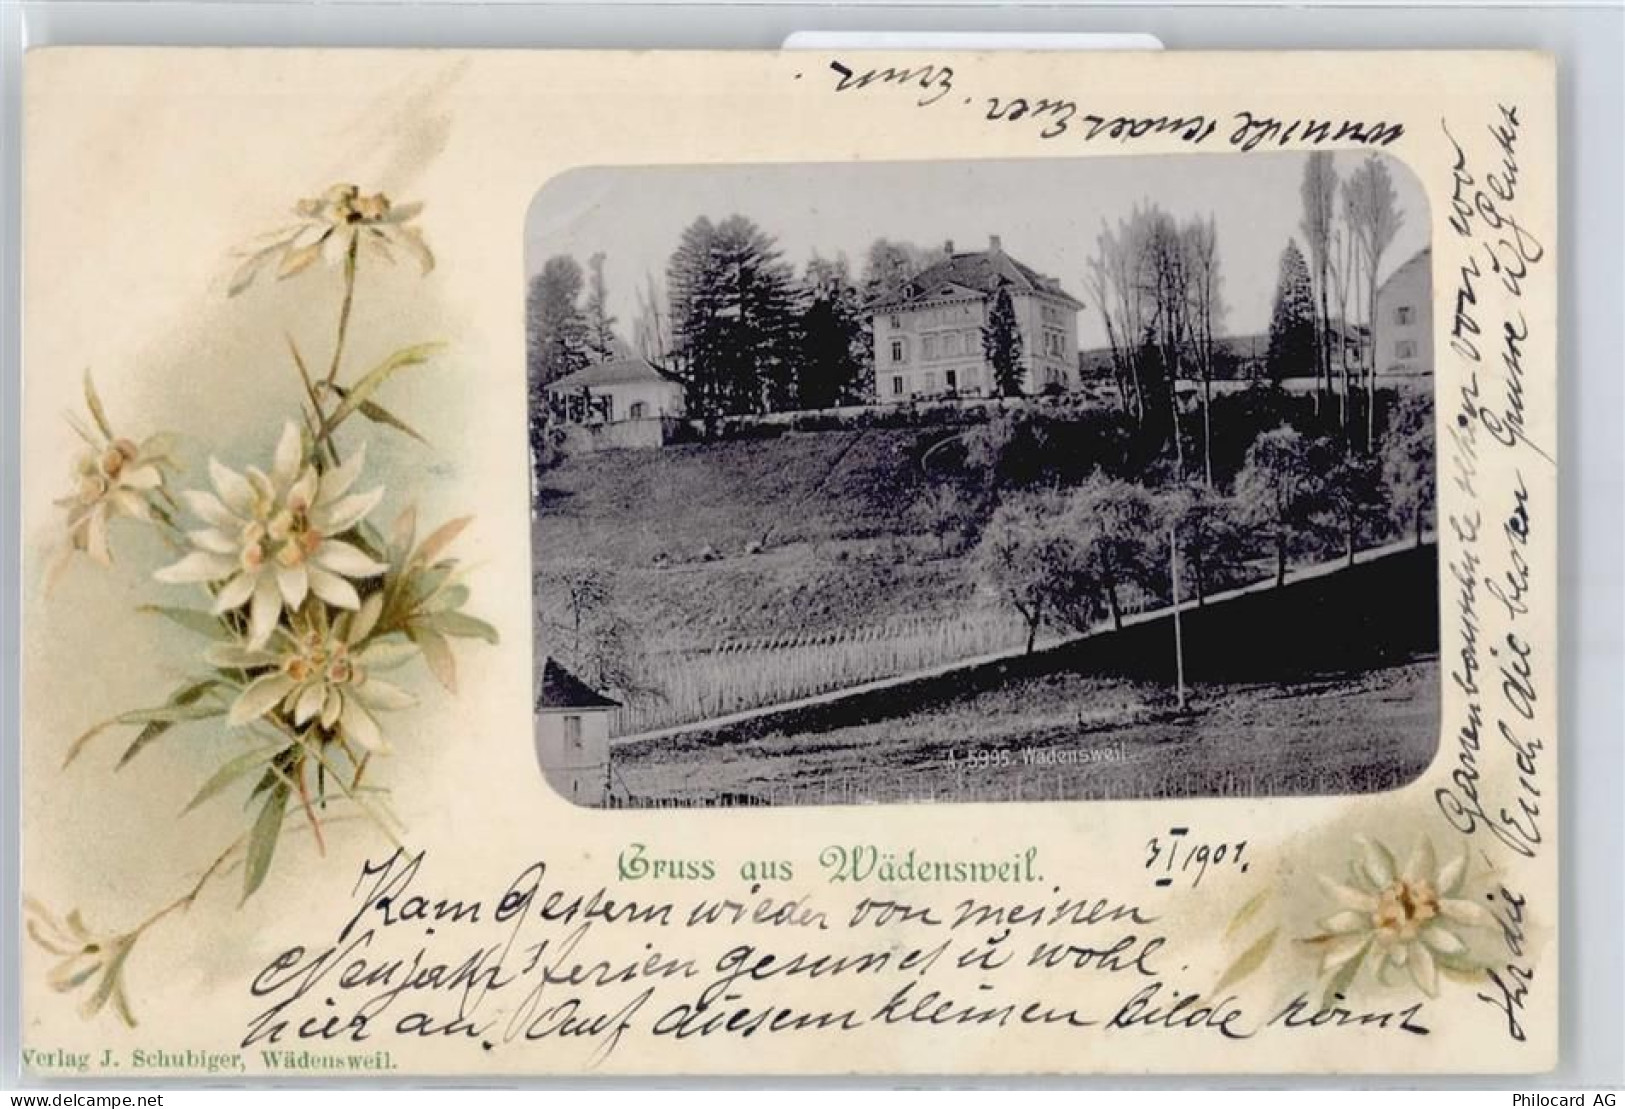 A. 5995. Wädensweil.
Gruss aus Wädensweil.
3/I 1901.
Kam Gestern wieder von meinen
Neujahr'sferien gesund u wohl
hier an. Auf diesem kleinen Bilde könnt
Ihr die Gartenbauschule sehen von wo
Euch die besten Grüsse u. Glücks
wünsche sendet Euer. Ernst.
Verlag J. Schubiger, Wädensweil.
Philocard AG